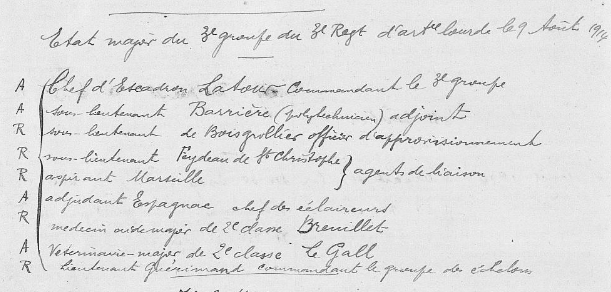 Etat major du 3e groupe du 3e Regt d'artie lourde le 9 Août 1914
A Chef d'Escadron Latour commandant le 3e groupe
A sous-lieutenant Barrière (polytechnicien) adjoint
R sous-lieutenant de Boisgrollier officier d'approvisionnement
R sous-lieutenant Feydeau de St Christophe } agents de liaison
R aspirant Marseille
A adjudant Espagnac chef des éclaireurs
R medecin aide major de 2e classe Breuillet
A Vétérinaire-major de 2e classe Le Gall
R Lieutenant Guérimand commandant le groupe des échelons